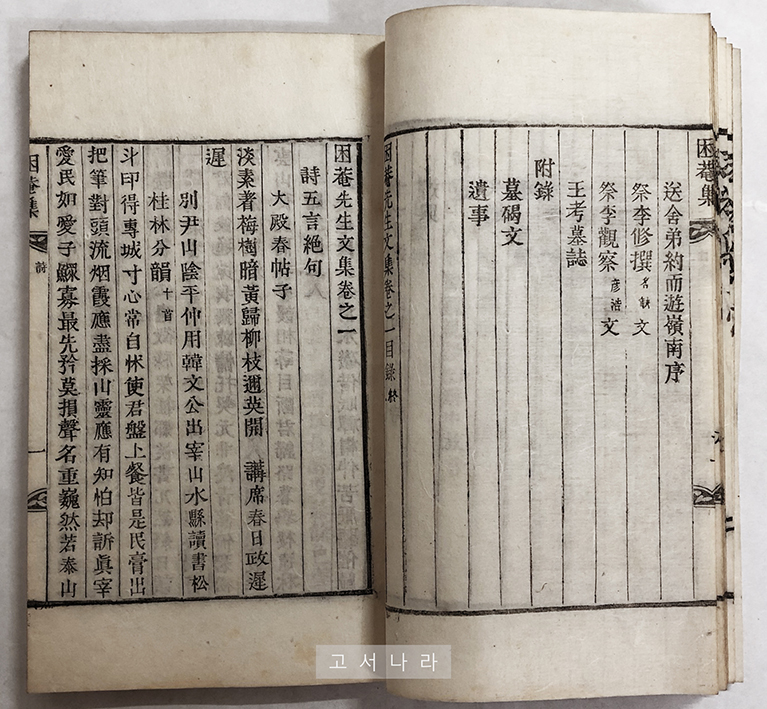 困菴集
送舍弟約而遊嶺南序
祭李修撰 文
祭李觀察 彦浩 文
王考墓誌
附錄
墓碣文
遺事
困菴先生文集卷之一目錄 終
困菴先生文集卷之一
詩五言絶句
大殿春帖子
淡素著梅樹暗黃歸柳枝邇英開 講席春日政遲
遲
別尹山陰平仲用韓文公出宰山水縣讀書松
桂林分韻 十首
斗印得專城寸心常自怵使君盤上餐皆是民膏出
把筆對頭流烟霞應盡採山靈應有知怕却訴眞宰
愛民如愛子鰥寡最先矜莫損聲名重巍然若泰山
困菴集
詩
一
고서나라